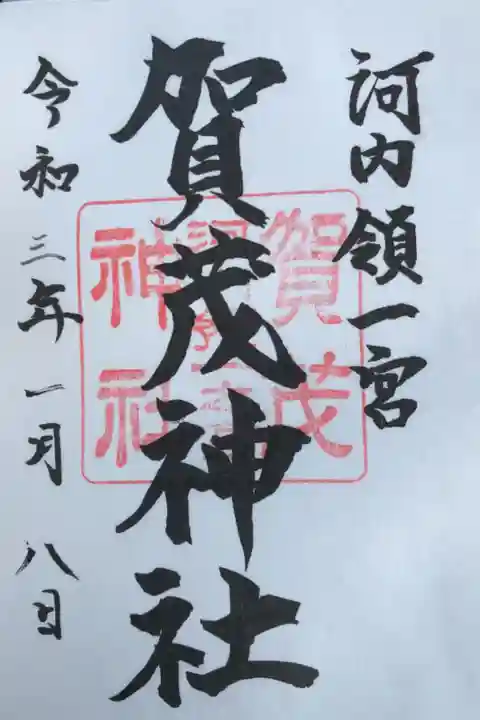 河内領一宮
賀茂神社
令和三年一月八日
賀茂
神社